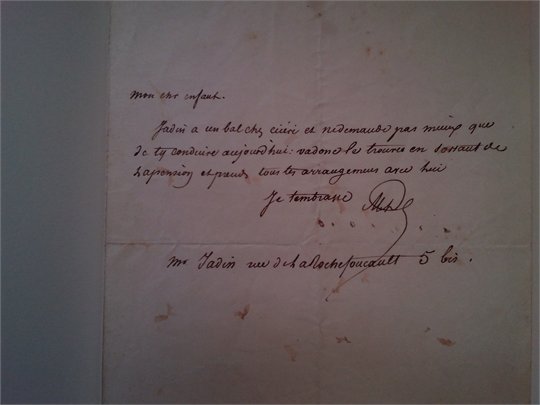 mon cher enfant.
Jadin a un bal chez cicéri et ne demande pas mieux que
de ty conduire aujourd'hui: va donc le trouver en sortant de
la pension et prends tous tes arrangemens avec lui
Je t'embrasse
Mr Jadin rue de la Rochefoucault 5 bis.